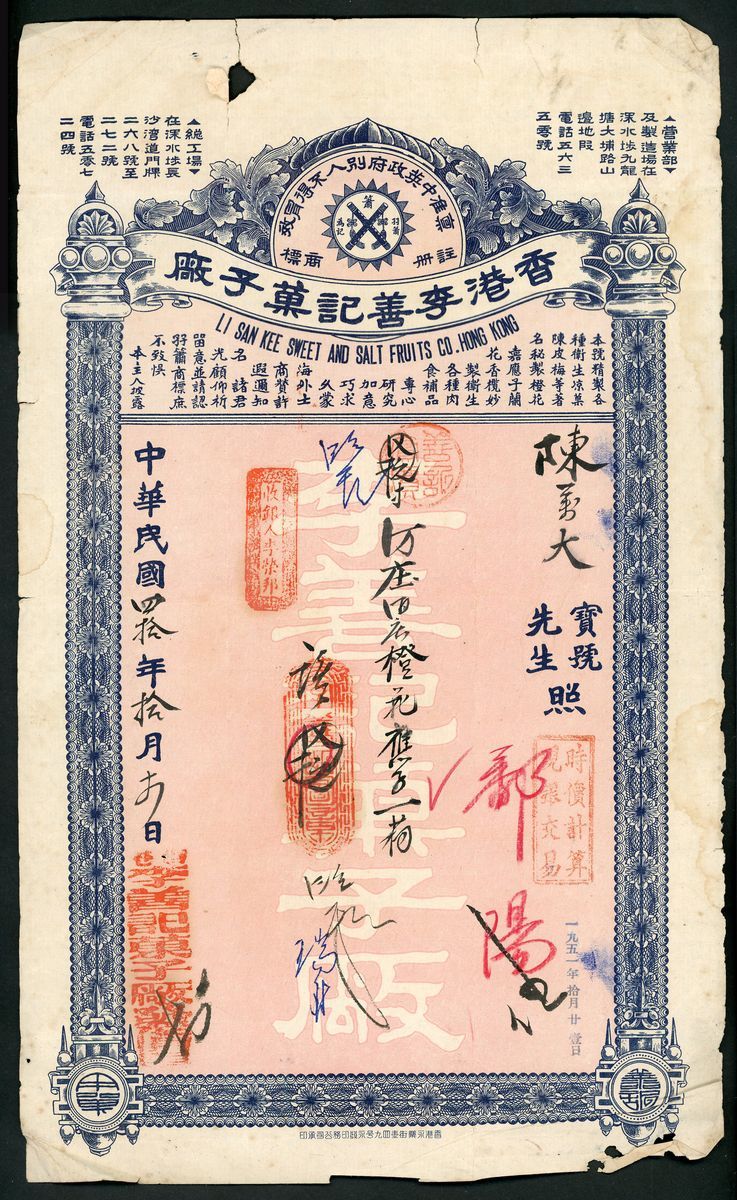 ▲營業部▼
及製造場在
深水埗九龍
塘大埔路山
邊地段
電話五六三
五零號
▲總工場▼
在深水埗長
沙灣道門牌
二六八號至
二七二號
電話五零七
二四號
稟准中英政府別人不得冒效
蕭
為記
註冊商標
香港李善記菓子廠
LI SAN KEE SWEET AND SALT FRUITS CO. HONG KONG
本號精製各
種衛生凉菓
陳皮梅等著
名秘製橙花
嘉應子蘭
花香欖妙
製衛生
各種肉
食補品
專心
研究
加意
巧求
久蒙
海外士
商贊許
遐邇知
名 諸君
光顧仰祈
留意並請認
羽蕭商標庶
不致悞
本主人披露
陳萬大
寶號
先生
照
時價計算
現銀交易
一九五一年拾月廿壹日
鄱陽
橙花應子一箱
收銀人李榮邦
李善記菓子廠
中華民國四拾年拾月 日
李善記菓子廠